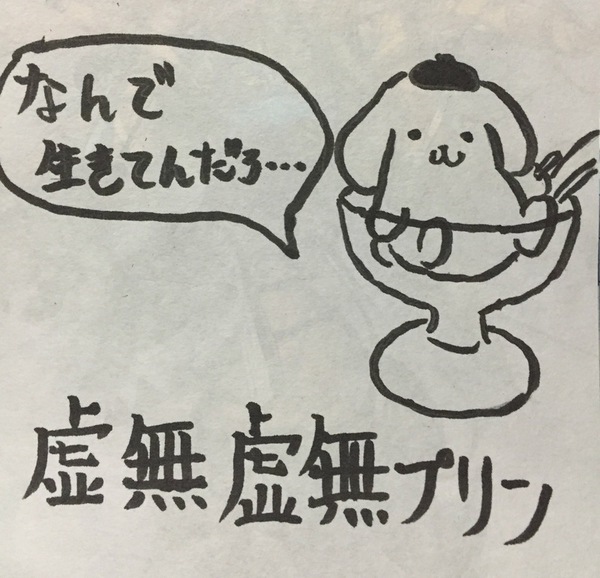 なんで
生きてんだろ…
虚無虚無プリン